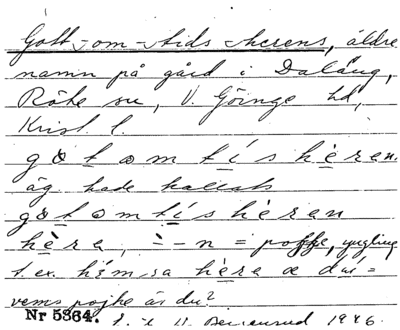 Gott-om-tids-herens, äldre
namn på gård i Daläng,
Röke sn, V. Göinge hd,
Krist. l.
g ɷ t ɷ m t í s h è r e n.
äg hade kallats
g ɷ t ɷ m t í s h è r e n
h è r a, -n = poffe, yngling
t.ex. hém, sa hèra æ du =
vems pojke är du?
Nr 5364. 1946.